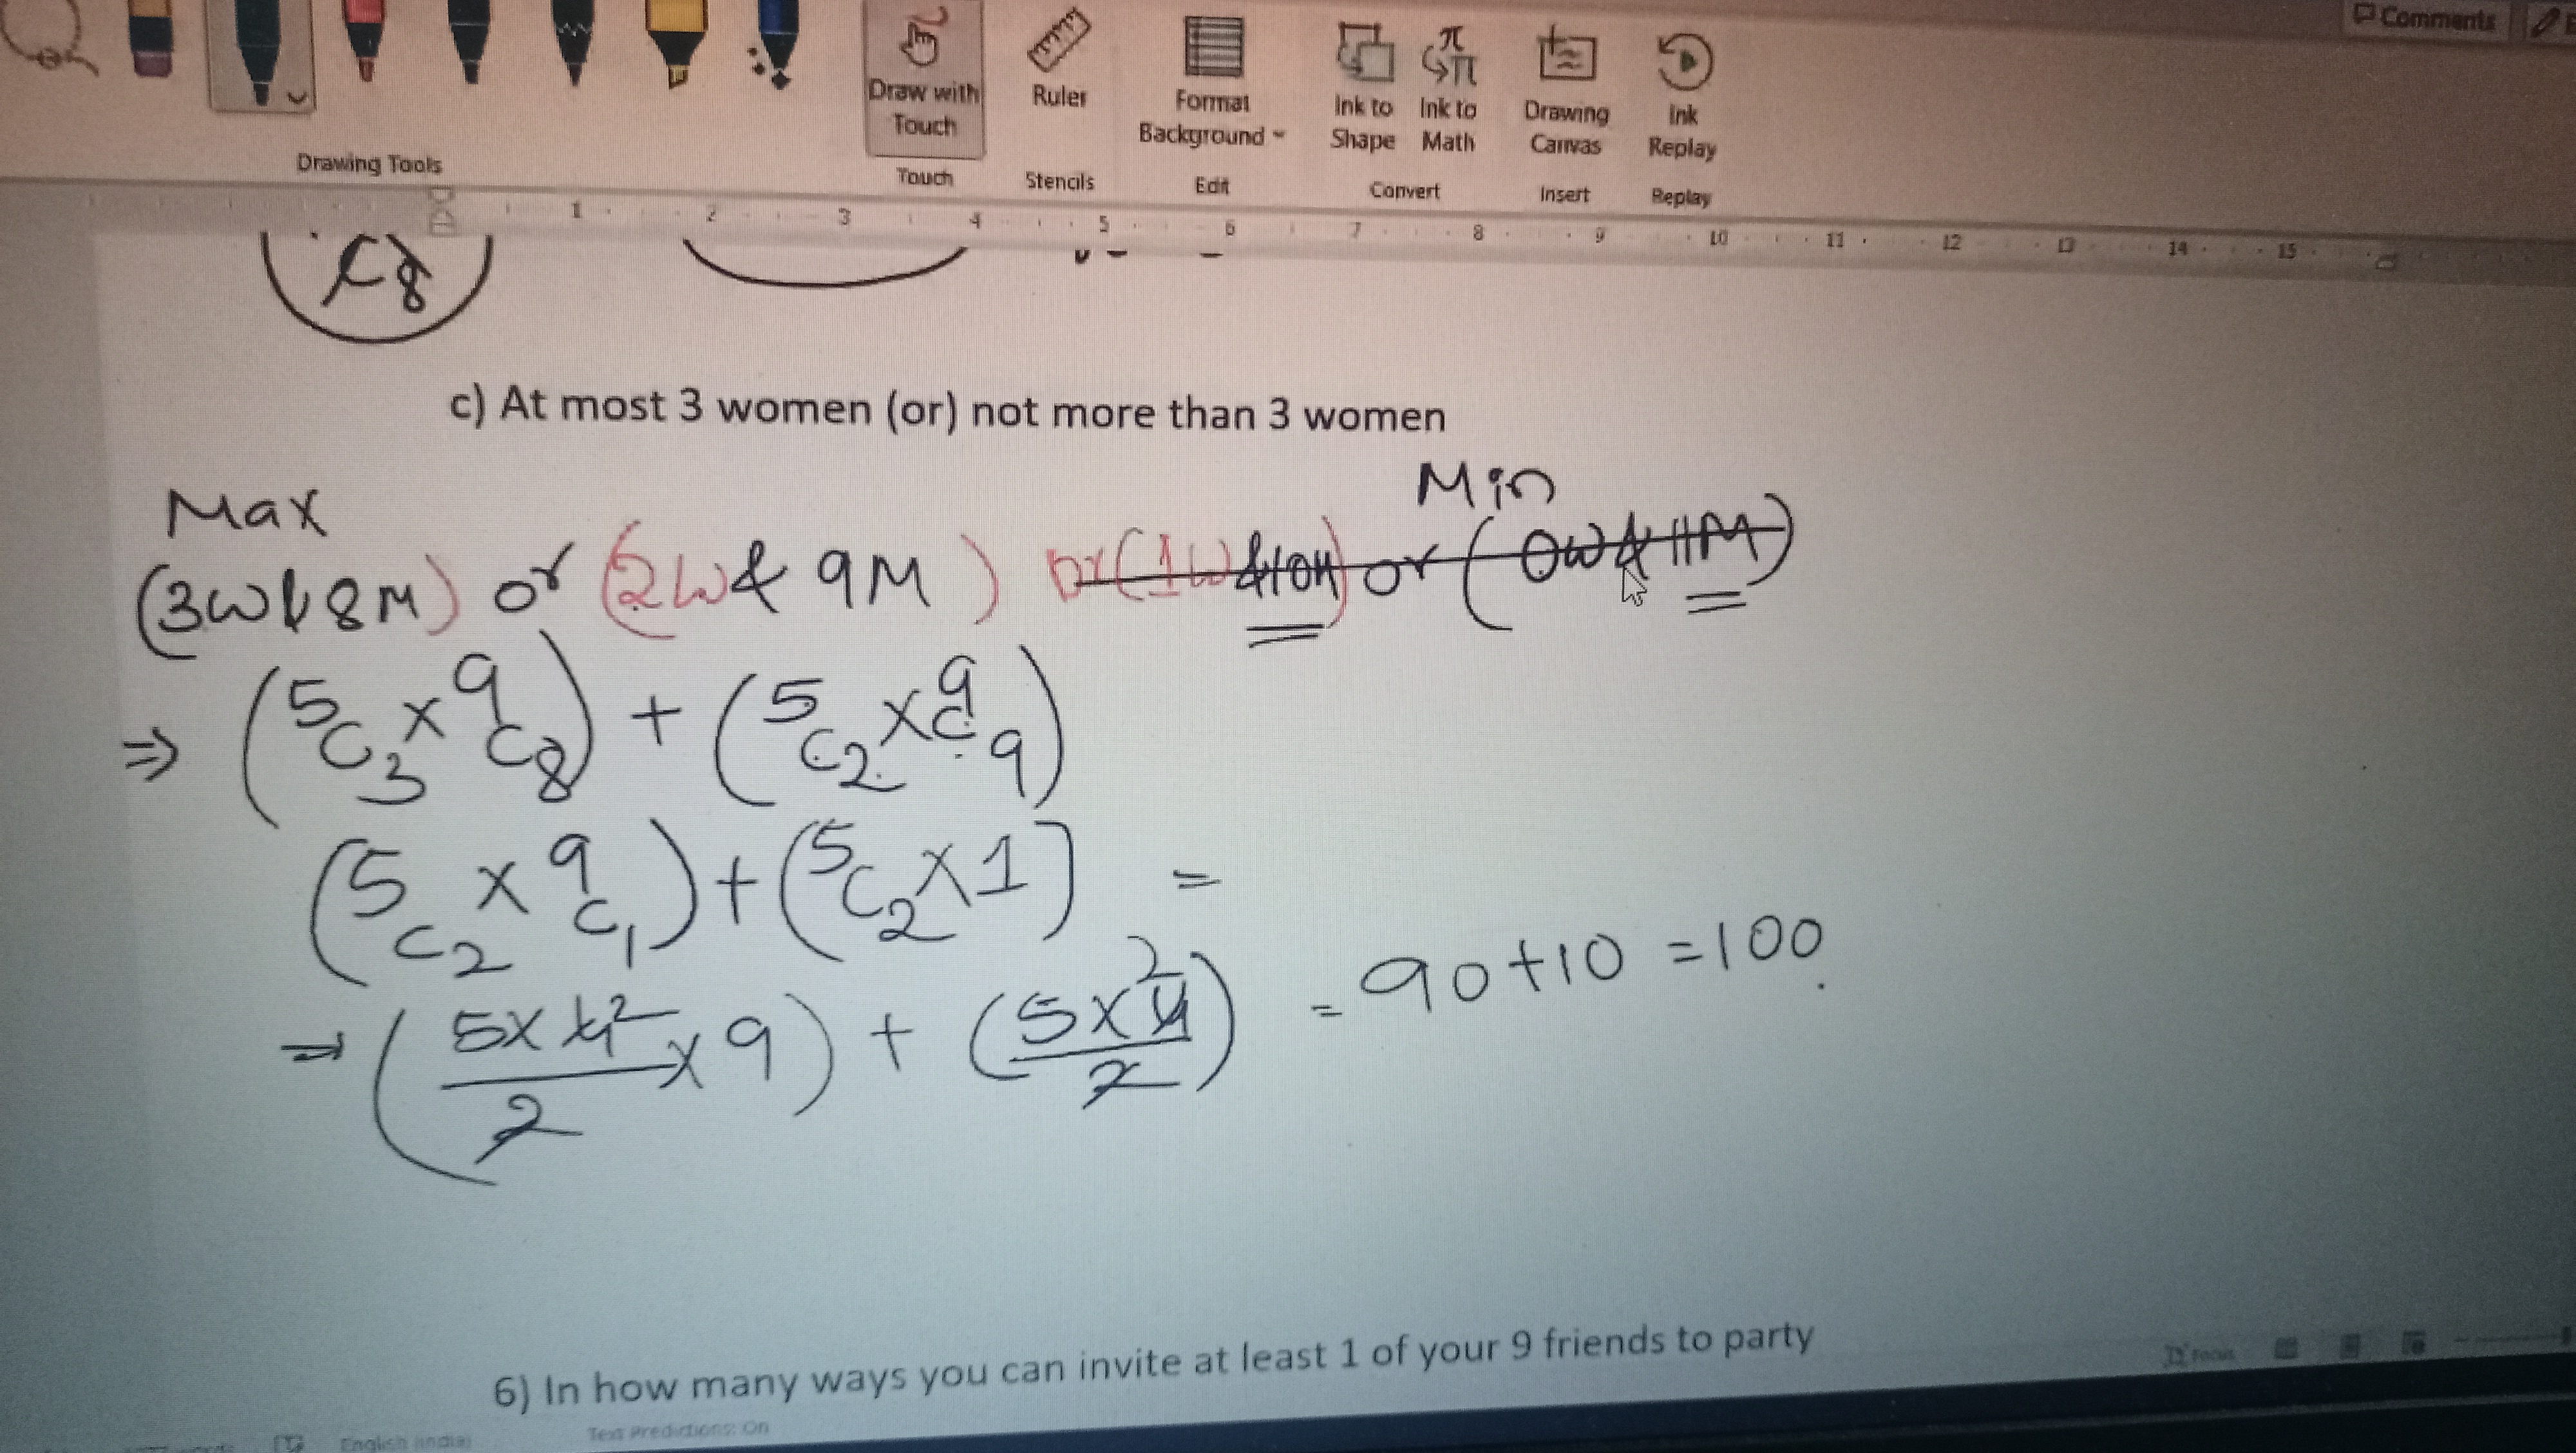 Comments
Draw with Touch
Ruler
Format Background
Ink to Shape
Ink to Math
Drawing Canvas
Ink Replay
Drawing Tools
Touch
Stencils
Edit
Convert
Insert
Replay
1 2 3 4 5 6 7 8 9 10 11 12 13 14 15
c) At most 3 women (or) not more than 3 women
Max Min
(3W & 8M) or (2W & 9M) or (1W & 10M) or (0W & 11M)
⇒ (⁵C₃ × ⁹C₈) + (⁵C₂ × ⁹C₉)
(⁵C₂ × ⁹C₁) + (⁵C₂ × 1) =
⇒ (5×4²/2 × 9) + (5×4²/2) = 90 + 10 = 100.
6) In how many ways you can invite at least 1 of your 9 friends to party
English (India)
Text Predictions: On
Focus